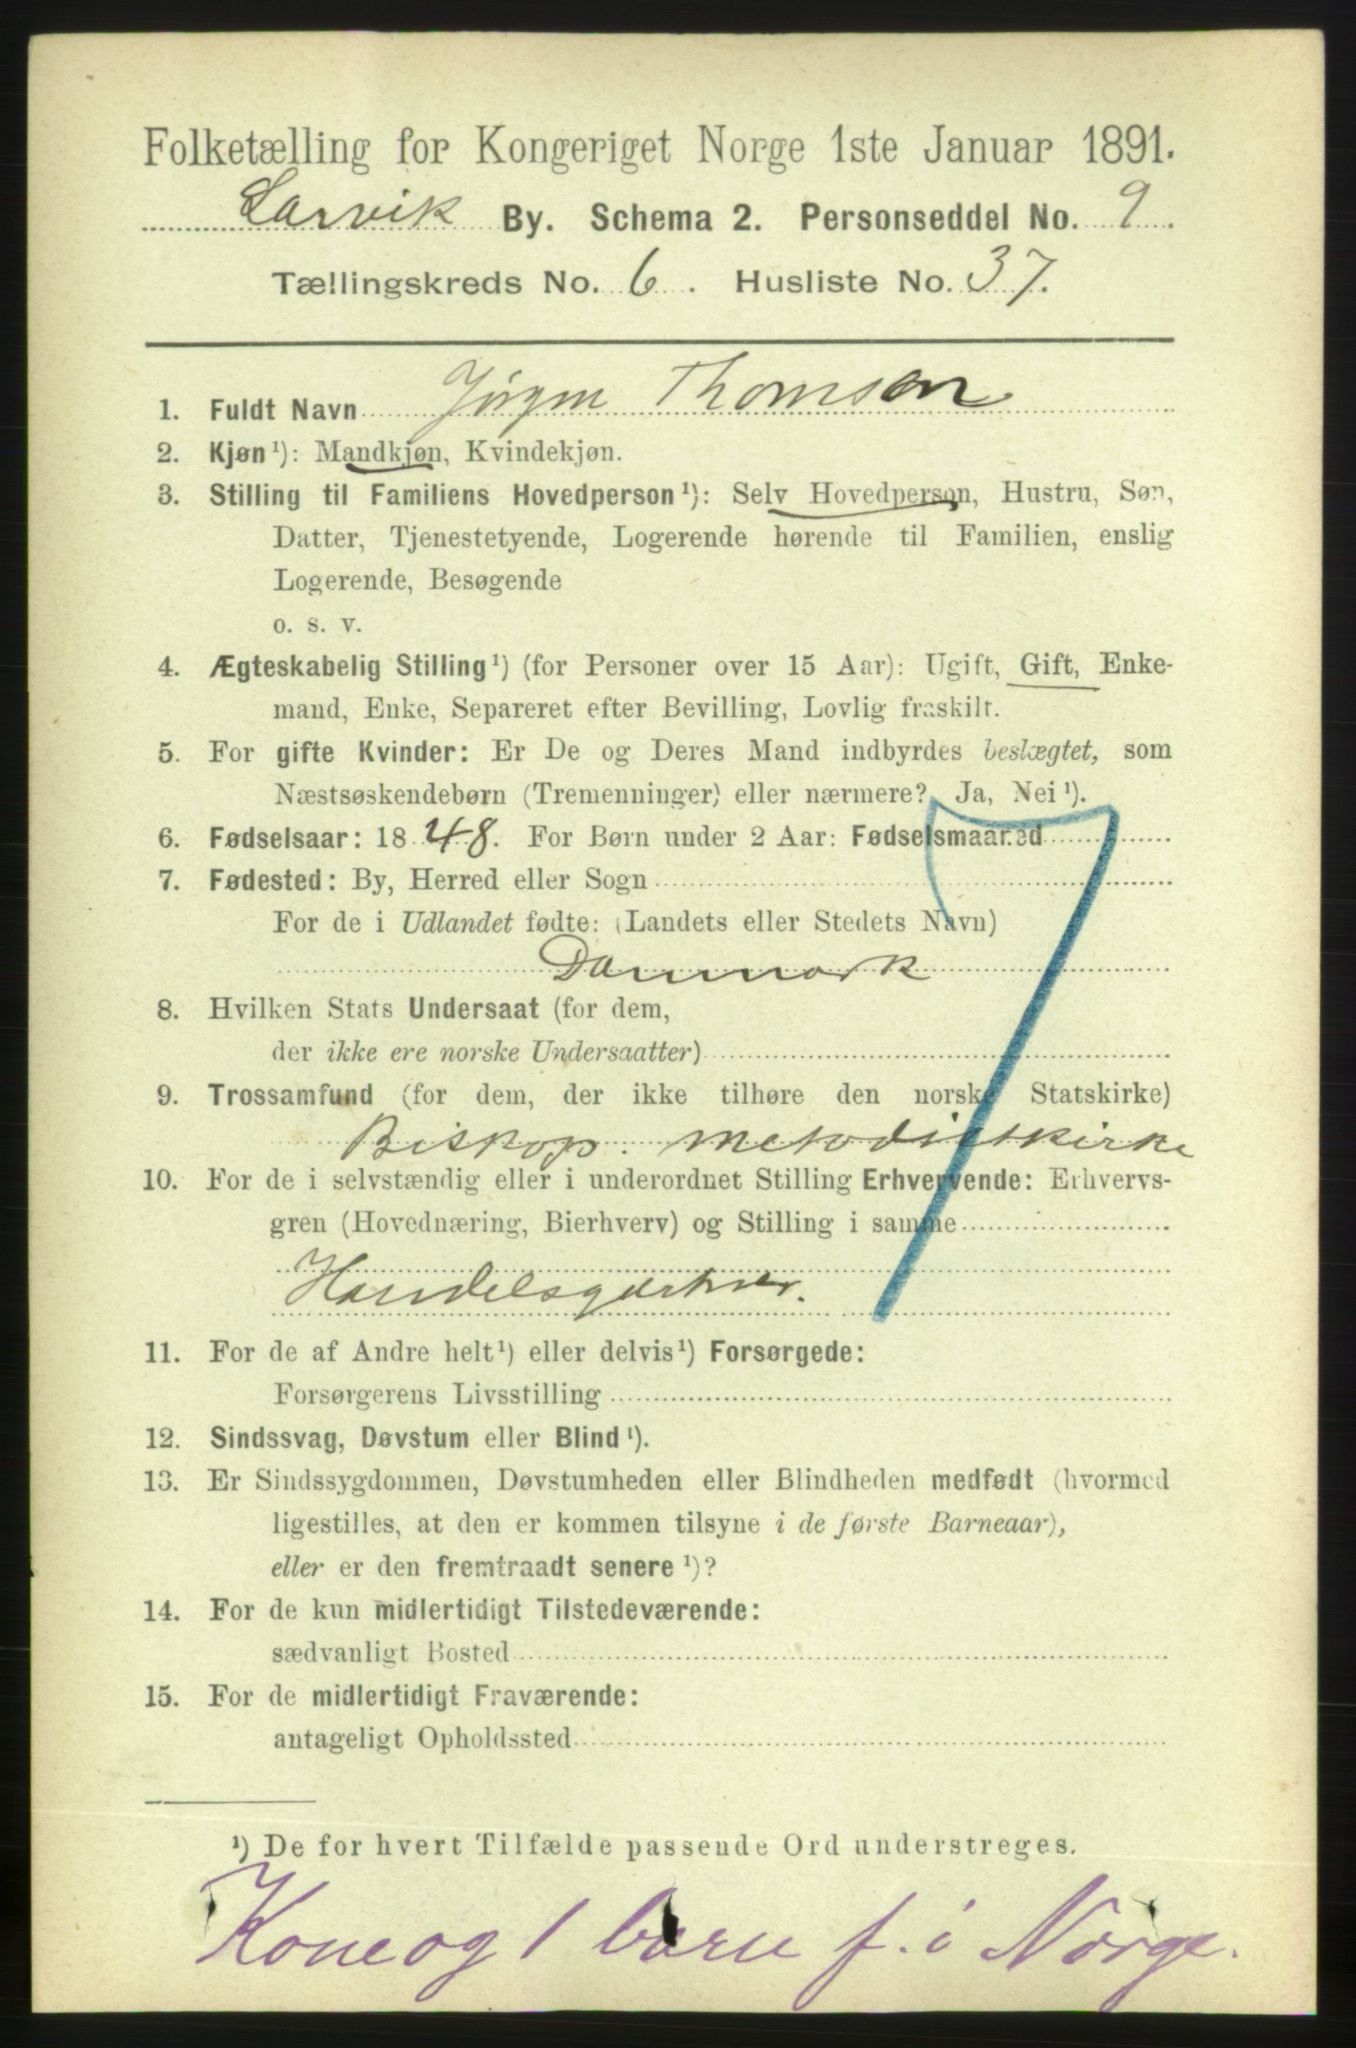 Folketælling for Kongeriget Norge 1ste Januar 1891.
Larvik By. Schema 2. Personseddel No. 9.
Tællingskreds No. 6. Husliste No. 37.
1. Fuldt Navn Jörgen Thomsen
2. Kjøn¹): Mandkjøn, Kvindekjøn.
3. Stilling til Familiens Hovedperson¹): Selv Hovedperson, Hustru, Søn,
Datter, Tjenestetyende, Logerende hørende til Familien, enslig
Logerende, Besøgende
o. s. v.
4. Ægteskabelig Stilling¹) (for Personer over 15 Aar): Ugift, Gift, Enke-
mand, Enke, Separeret efter Bevilling, Lovlig fraskilt.
5. For gifte Kvinder: Er De og Deres Mand indbyrdes beslægtet, som
Næstsøskendebørn (Tremenninger) eller nærmere? Ja, Nei¹).
6. Fødselsaar: 1848. For Børn under 2 Aar: Fødselsmaaned
7. Fødested: By, Herred eller Sogn
For de i Udlandet fødte: (Landets eller Stedets Navn)
Danmark
8. Hvilken Stats Undersaat (for dem,
der ikke ere norske Undersaatter)
9. Trossamfund (for dem, der ikke tilhøre den norske Statskirke)
Biskop. metodistkirke
10. For de i selvstændig eller i underordnet Stilling Erhvervende: Erhvervs-
gren (Hovednæring, Bierhverv) og Stilling i samme
Handelsgartner.
11. For de af Andre helt¹) eller delvis¹) Forsørgede:
Forsørgerens Livsstilling
12. Sindssvag, Døvstum eller Blind¹).
13. Er Sindssygdommen, Døvstumheden eller Blindheden medfødt (hvormed
ligestilles, at den er kommen tilsyne i de første Barneaar),
eller er den fremtraadt senere¹)?
14. For de kun midlertidigt Tilstedeværende:
sædvanligt Bosted
15. For de midlertidigt Fraværende:
antageligt Opholdssted
¹) De for hvert Tilfælde passende Ord understreges.
Kone og 1 barn f. i Norge.